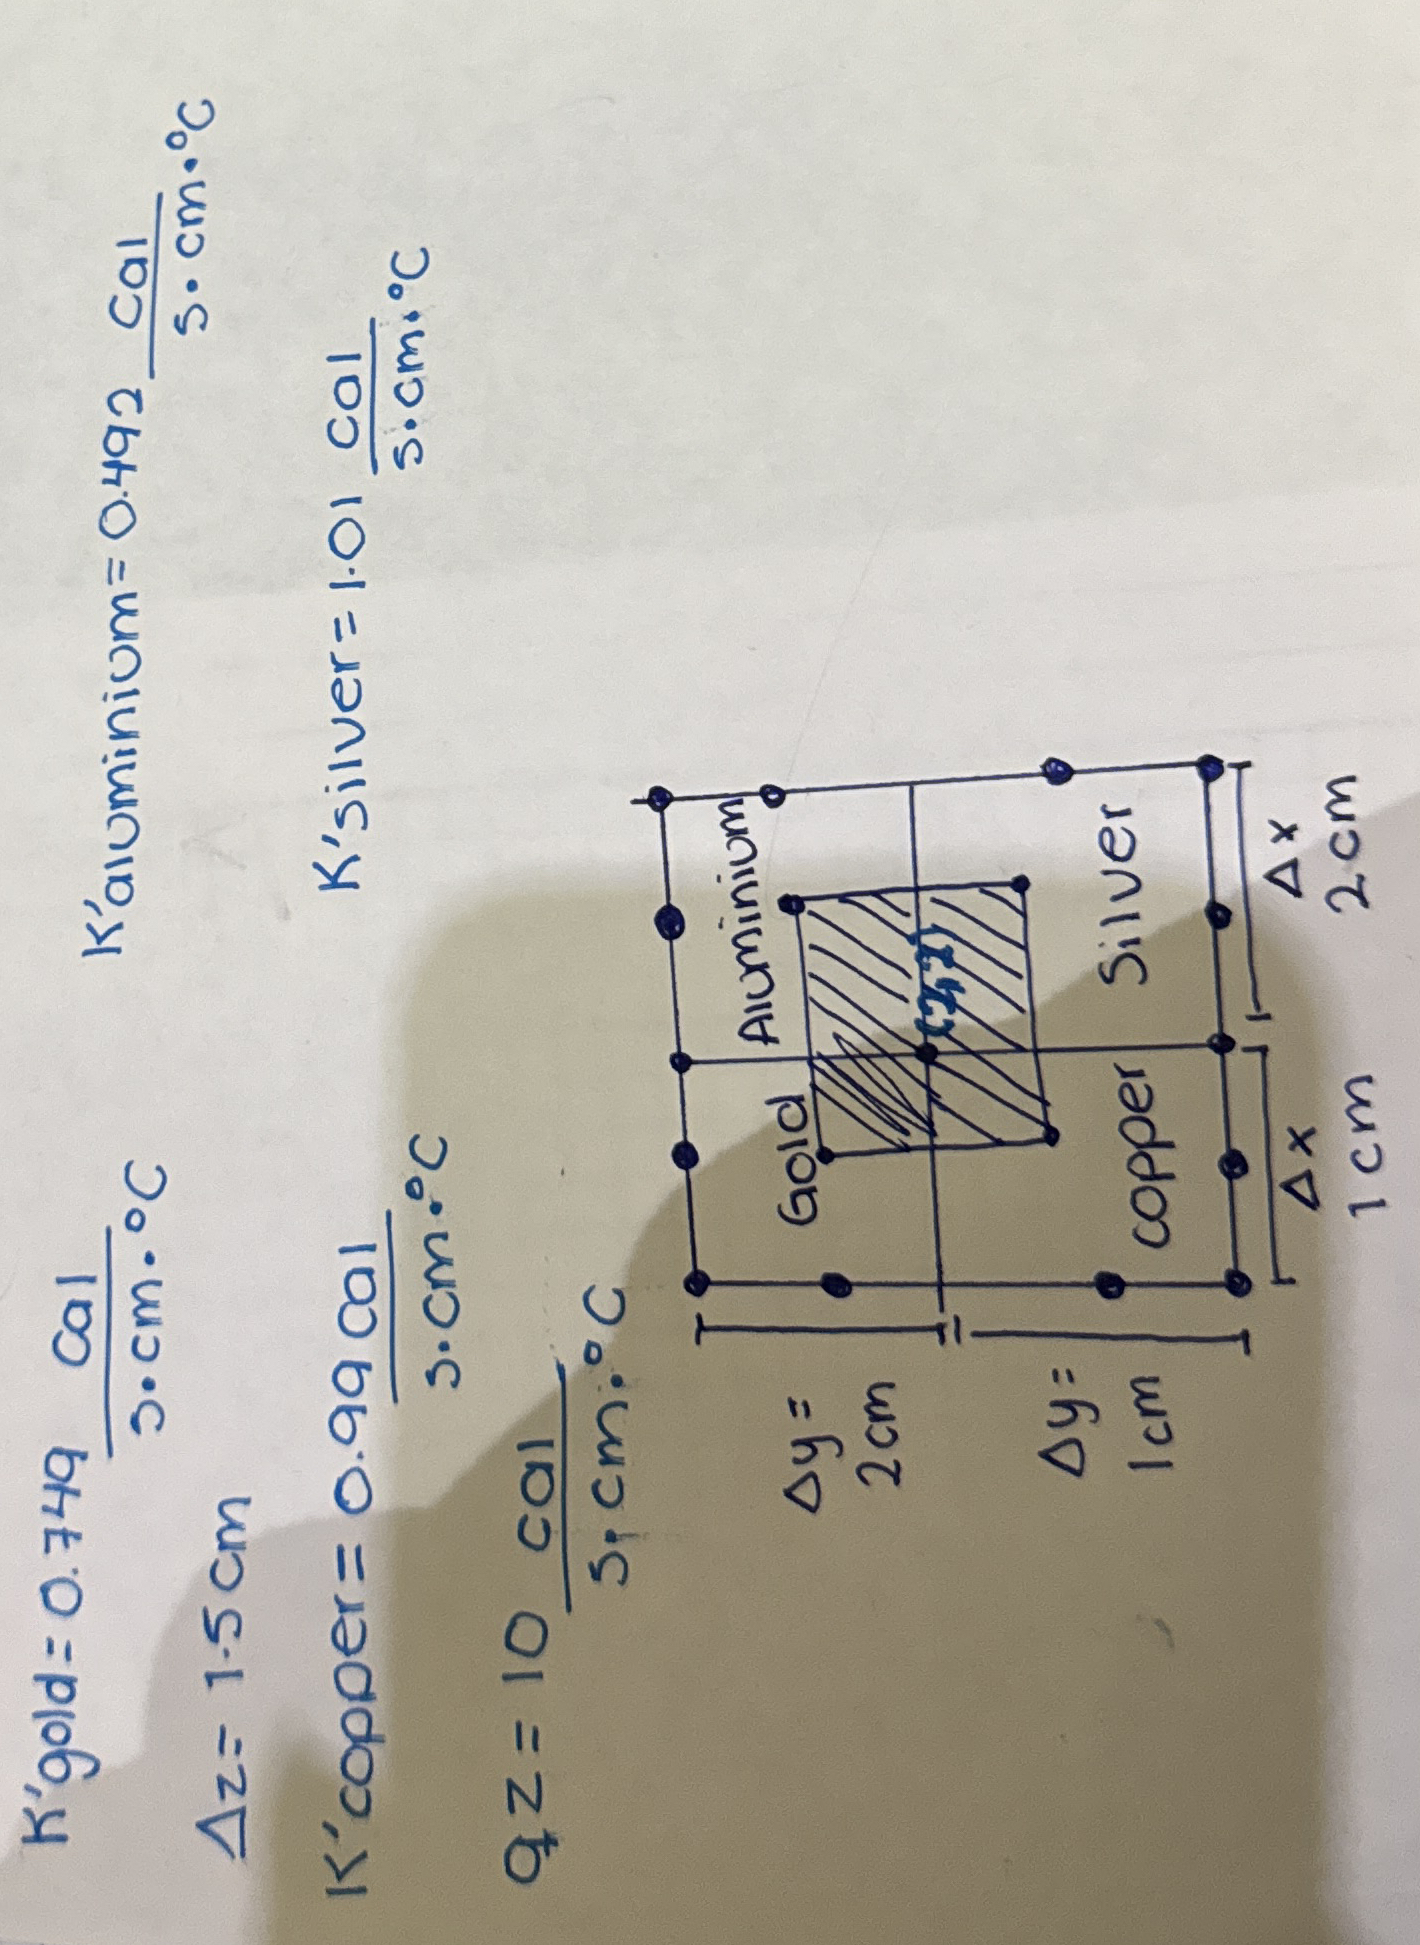 K'gold = 0.749 cal
s·cm·°C
K'aluminium = 0.492 cal
s·cm·°C
Δz = 1.5cm
K'copper = 0.99 cal
s·cm·°C
K'silver = 1.01 cal
s·cm·°C
qz = 10 cal
s·cm·°C
Δy =
2cm
Gold
Aluminium
(2,2)
Δy =
1cm
copper
Silver
Δx
1cm
Δx
2cm